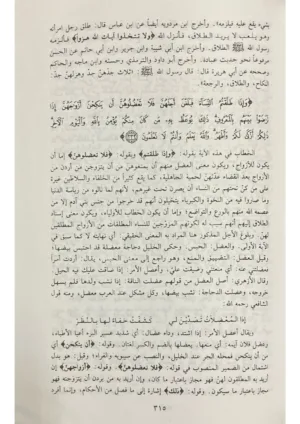 بشيء يقع عليه فيلزمه؟. وأخرج ابن مردويه أيضاً عن ابن عباس قال: طلق رجل امرأته
وهو يلعب لا يريد الطلاق، فأنزل الله ﴿ولا تتخذوا آيات الله هزوا﴾ فألزمه
رسول الله ﷺ الطلاق. وأخرج ابن أبي شيبة وابن جرير وابن أبي حاتم عن الحسن
مرفوعاً نحو حديث عبادة. وأخرج أبو داود والترمذي وحسنه وابن ماجه والحاكم
وصححه عن أبي هريرة قال: قال رسول الله ﷺ: ثلاث جدهن جد وهزلهن جد:
النكاح، والطلاق، والرجعة.
﴿وَإِذَا طَلَّقْتُمُ النِّسَاءَ فَبَلَغْنَ أَجَلَهُنَّ فَلَا تَعْضُلُوهُنَّ أَنْ يَنْكِحْنَ أَزْوَاجَهُنَّ إِذَا
تَرَاضَوْا بَيْنَهُمْ بِالْمَعْرُوفِ ذَلِكَ يُوعَظُ بِهِ مَنْ كَانَ مِنْكُمْ يُؤْمِنُ بِاللَّهِ وَالْيَوْمِ الْآخِرِ
ذَلِكُمْ أَزْكَى لَكُمْ وَأَطْهَرُ وَاللَّهُ يَعْلَمُ وَأَنْتُمْ لَا تَعْلَمُونَ﴾
الخطاب في هذه الآية بقوله: ﴿وإذا طلقتم﴾ وبقوله: ﴿فلا تعضلوهن﴾ إما أن
يكون للأزواج، ويكون معنى العضل منهم أن يمنعوهن من أن يتزوجن من أردن من
الأزواج بعد انقضاء عدتهن لحمية الجاهلية، كما يقع كثيراً من الخلفاء والسلاطين غيرة
على من كن تحتهم من النساء أن يصرن تحت غيرهم، لأنهم لما نالوه من رياسة الدنيا
وما صاروا فيه من النخوة والكبرياء يتخيلون أنهم قد خرجوا من جنس بني آدم إلا من
عصمه الله منهم بالورع والتواضع؛ وإما أن يكون الخطاب للأولياء، ويكون معنى إسناد
الطلاق إليهم أنهم سبب له لكونهم المزوجين للنساء المطلقات من الأزواج المطلقين
لهن. وبلوغ الأجل المذكور هنا المراد به المعنى الحقيقي: أي نهايته لا كما سبق في
الآية الأولى. والعضل: الحبس. وحكى الخليل دجاجة معضلة قد احتبس بيضها؛
وقيل العضل: التضييق والمنع، وهو راجع إلى معنى الحبس، يقال: أردت أمراً
فعضلتني عنه: أي منعتني وضيقت عليّ، وأعضل الأمر: إذا ضاقت عليك فيه الحيل.
وقال الأزهري: أصل العضل من قولهم عضلت الناقة: إذا نشب ولدها فلم يسهل
خروجه، وعضلت الدجاجة: نشب بيضها، وكل مشكل عند العرب معضل، ومنه قول
الشافعي رحمه الله:
إذا المعضلات تصدين لي كشفت حقائقها بالنظر
ويقال أعضل الأمر: إذا اشتد، وداء عضال: أي شديد عسير البرء أعيا الأطباء،
وعضل فلان أيمه: أي منعها، يعضلها بالضم والكسر لغتان. وقوله: ﴿أن ينكحن﴾ أي
من أن ينكحن فمحله الجر عند الخليل، والنصب عند سيبويه والفراء؛ وقيل: هو بدل
اشتمال من الضمير المنصوب في قوله: ﴿فلا تعضلوهن﴾. وقوله: ﴿أزواجهن﴾ إن
أريد به المطلقون لهن فهو مجاز باعتبار ما كان، وإن أريد به من يردن أن يتزوجنه فهو
مجاز باعتبار ما سيكون. وقوله: ﴿ذلك﴾ إشارة إلى ما فصل من الأحكام، وإنما أفرد
٣١٥